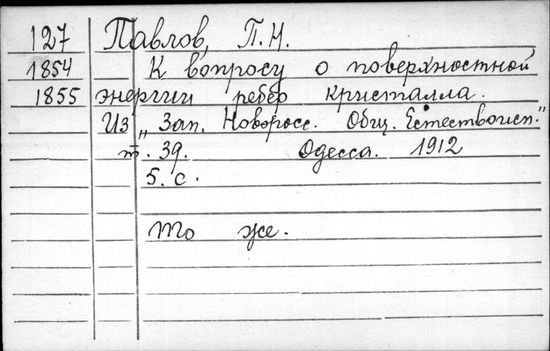 127 Павлов, П.Н.
1854 К вопросу о поверхностной
1855 энергии ребер кристалла.
Из „Зап. Новоросс. Общ. Естествоисп."
т. 39. Одесса. 1912
5. с.
То же.